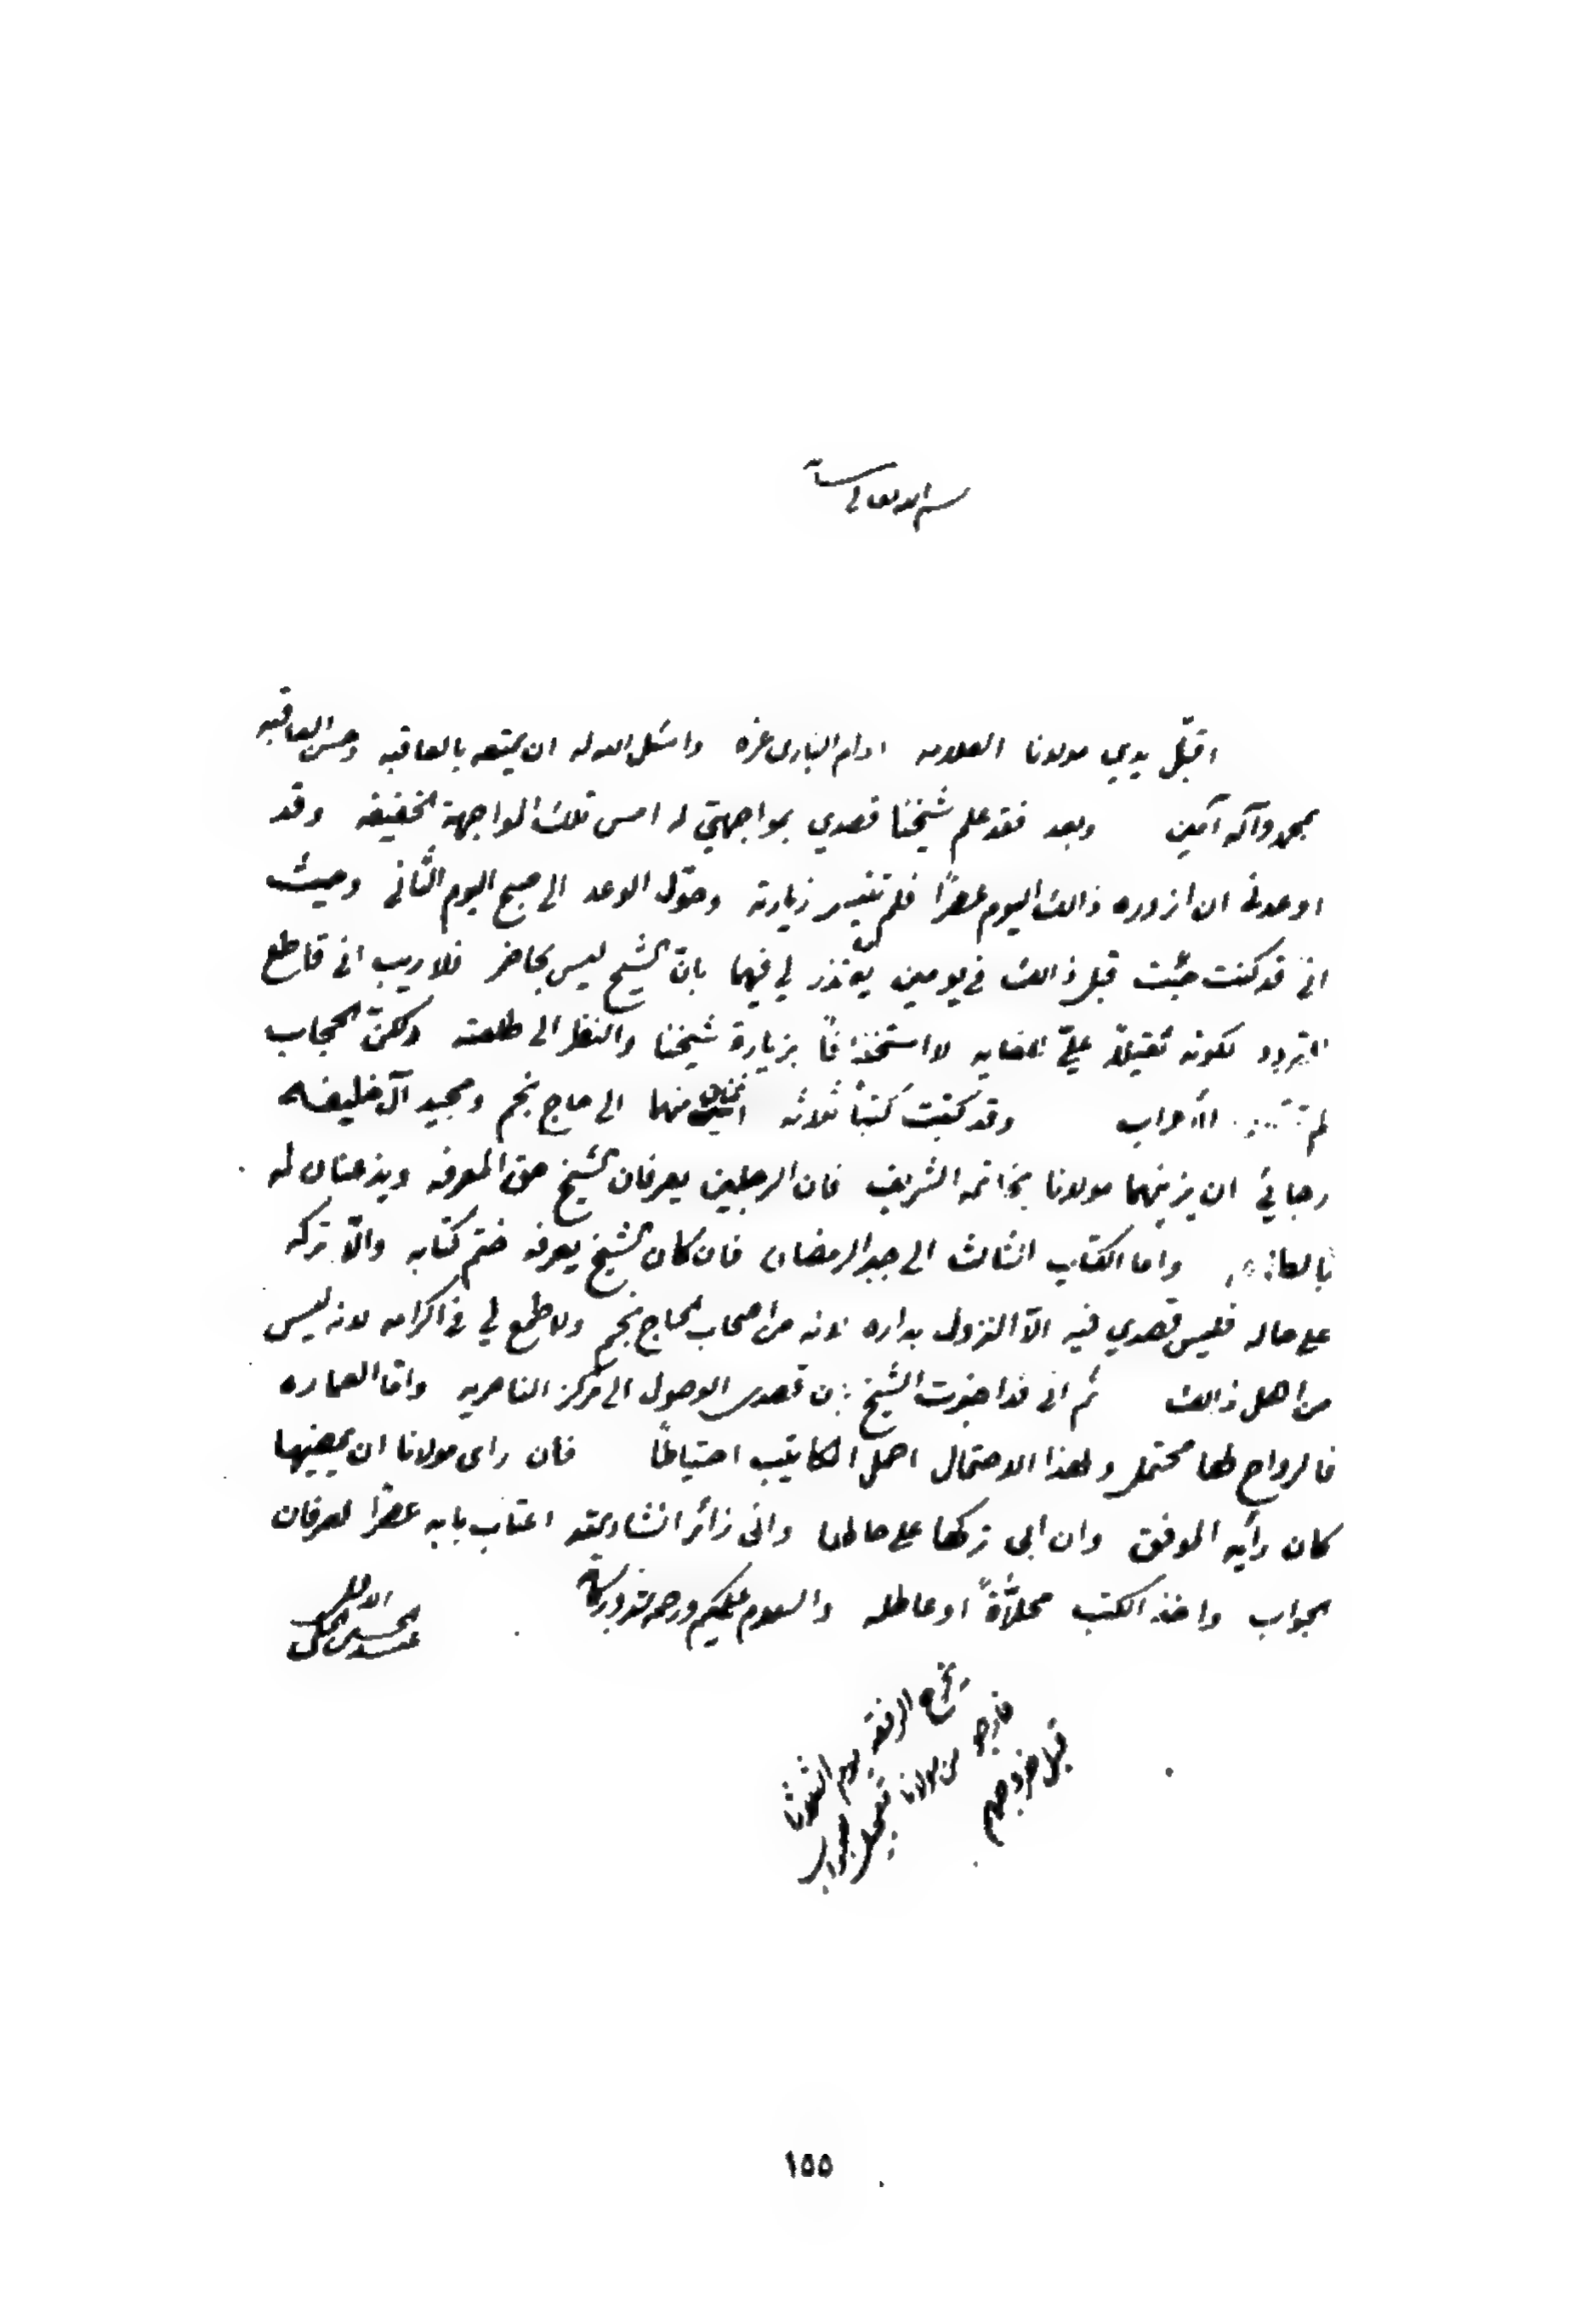 بسم الله تعالى
اقبّل يدي مولانا العلامه ادام الباري عزه واسئل الله له ان يمتعه بالعافيه وحسن العاقبه
بمحمد وآله آمين وبعد فقد علم شيخنا قصدي بمواجهتي له امس تلك المواجهة الخفيفه وقد
اوعدته ان ازوره ذالك اليوم عصرًا فلم تتيسر زيارته وحوّل الوعد الى صبح اليوم الثّاني وحيث
اني قد كنت جئت قبل ذالك في يومين يعتذر لي فيهما بانّ الشيخ ليس بحاضر فلا ريب اني قاطع
التردد لكونه ثقيلاً عليّ للغايه لا استخفافًا بزيارة شيخنا والنظر الى طلعته ولكنّ الحجاب
لم الأحراب وقد كتبت كتبًا ثلاثه اثنان منهما الى حاج نجم ومجيد آل خليفه
رجائي ان يزينهما مولانا بخاتمه الشريف فان الرجلين يعرفان الشيخ حق المعرفه ويذعنان له
واما الكتاب الثالث الى جبر الرمضان فان كان الشيخ يعرفه ختم كتابه والّا تركه
على حاله فليس قصدي فيه الّا النزول بداره لانه من اصحاب الحاج نجم ولا طمع لي في اكرامه لانه ليس
من اهل ذالك ثم اني قد اخبرت الشيخ بان قصدي الوصول الى مركز الناصريه وامّا العماره
فالرواح لها محتمل ولهذا الاحتمال احمل المكاتيب احتياطًا فان راى مولانا ان يمضيها
كان رأيه الموفق وان ابى تركها على حالها واني زائر انشاء الله اعتاب بابه عصرًا لعرفان
الجواب واخذ الكتب محلاّةً او عاطله والسلام عليكم ورحمة الله وبركاته
الاقل
عبد الحسين الحلي